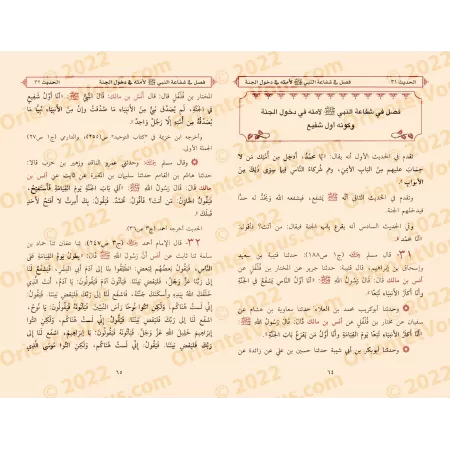 الحديث ٣١
فصل في شفاعة النبي ﷺ لأمته في دخول الجنة
فصل في شفاعة النبي ﷺ لأمته في دخول الجنة
وكونه أول شفيع
تقدم في الحديث الأول أنه يقال: «يَا مُحَمَّدُ، أَدْخِلْ مِنْ أُمَّتِكَ مَنْ لَا
حِسَابَ عليهم مِنْ البَابِ الأيمنِ، وَهُمْ شُرَكَاءُ النَّاسِ فِيمَا سِوَى ذَلِكَ مِنَ
الأَبوابِ».
وتقدم في الحديث الثاني أنه ﷺ يشفع، فيشفعه الله ويَحُد له حدًّا
فيدخلهم الجنة.
وفي الحديث السادس أنه يقرع باب الجنة فيقال: من أنت؟ فأقول:
أنا محمد.
٣١- قال مسلم (ج١ ص١٨٨): حدثنا قتيبة بن سعيد
وإسحاق بن إبراهيم، قال قتيبة: حدثنا جرير عن المختار بن فُلْفُل عن
أنس بن مالك قال: قال رَسُولُ اللهِ ﷺ: «أَنَا أَوَّلُ النَّاسِ يَشْفَعُ فِي الجَنَّةِ
وَأَنَا أَكْثَرُ الأَنْبِيَاءِ تَبَعًا».
وحدثنا أبوكريب محمد بن العلاء، حدثنا معاوية بن هشام عن
سفيان عن مختار بن فُلْفُل عن أنس بن مالك قال: قَالَ رَسُولُ اللهِ ﷺ:
«أَنَا أَكْثَرُ الأَنْبِيَاءِ تَبَعًا يَوْمَ القِيَامَةِ وَأَنَا أَوَّلُ مَنْ يَقْرَعُ بَابَ الجَنَّةِ».
وحدثنا أبوبكر بن أبي شيبة حدثنا حسين بن علي عن زائدة عن
٦٤
فصل في شفاعة النبي ﷺ لأمته في دخول الجنة
الحديث ٣٢
المختار بن فُلْفُل قال: قال أنس بن مالك: قَالَ النَّبِيُّ ﷺ: «أَنَا أَوَّلُ شَفِيعٍ
فِي الجَنَّةِ، لَمْ يُصَدَّقْ نَبِيٌّ مِنَ الأَنْبِيَاءِ مَا صُدِّقْتُ وَإِنَّ مِنَ الأَنْبِيَاءِ نَبِيًّا مَا
يُصَدِّقُهُ مِنْ أُمَّتِهِ إِلَّا رَجُلٌ وَاحِدٌ».
وأخرجه ابن خزيمة في «كتاب التوحيد» ص(٢٥٥)، والدارمي (ج١ ص٢٧)
الجملة الأولى.
وقال مسلم: وحدثني عمرو الناقد وزهير بن حرب قالا:
حدثنا هاشم بن القاسم حدثنا سليمان بن المغيرة عن ثابت عن أنس بن
مالك قال: قَالَ رَسُولُ اللهِ ﷺ: «آتِي بَابَ الجَنَّةِ يَوْمَ القِيَامَةِ فَأَسْتَفْتِحُ،
فَيَقُولُ الخَازِنُ: مَنْ أَنْتَ؟ فَأَقُولُ: مُحَمَّدٌ. فَيَقُولُ: بِكَ أُمِرْتُ لَا أَفْتَحُ لِأَحَدٍ
قَبْلَكَ».
الحديث أخرجه أحمد (ج٣ ص٣٦).
٣٢- قال الإمام أحمد (ج٣ ص٢٤٧): ثنا عفان ثنا حماد بن
سلمة ثنا ثابت عن أنس أنَّ رَسُولَ اللهِ ﷺ قَالَ: «يَطُولُ يَوْمُ القِيَامَةِ عَلَى
النَّاسِ، فَيَقُولُ بَعْضُهُمْ لِبَعْضٍ: انْطَلِقُوا بِنَا إِلَى آدَمَ أَبِي البَشَرِ، فَيَشْفَعُ لَنَا
إِلَى رَبِّنَا عَزَّ وَجَلَّ، فَلْيَقْضِ بَيْنَنَا. فَيَأْتُونَ آدَمَ فَيَقُولُونَ: يَا آدَمُ، أَنْتَ الَّذِي
خَلَقَكَ اللهُ بِيَدِهِ وَأَسْكَنَكَ جَنَّتَهُ، فَاشْفَعْ لَنَا إِلَى رَبِّكَ فَلْيَقْضِ بَيْنَنَا. فَيَقُولُ:
إِنِّي لَسْتُ هُنَاكُمْ، وَلَكِنِ ائْتُوا نُوحًا رَأْسَ النَّبِيِّينَ. فَيَأْتُونَهُ فَيَقُولُونَ: يَا نُوحُ،
اشْفَعْ لَنَا إِلَى رَبِّكَ فَلْيَقْضِ بَيْنَنَا. فَيَقُولُ: إِنِّي لَسْتُ هُنَاكُمْ، وَلَكِنِ ائْتُوا
إِبْرَاهِيمَ خَلِيلَ اللهِ عَزَّ وَجَلَّ. فَيَأْتُونَهُ فَيَقُولُونَ: يَا إِبْرَاهِيمُ، اشْفَعْ لَنَا إِلَى
رَبِّكَ فَلْيَقْضِ بَيْنَنَا. فَيَقُولُ: إِنِّي لَسْتُ هُنَاكُمْ، وَلَكِنِ ائْتُوا مُوسَى الَّذِي
٦٥
© 2022